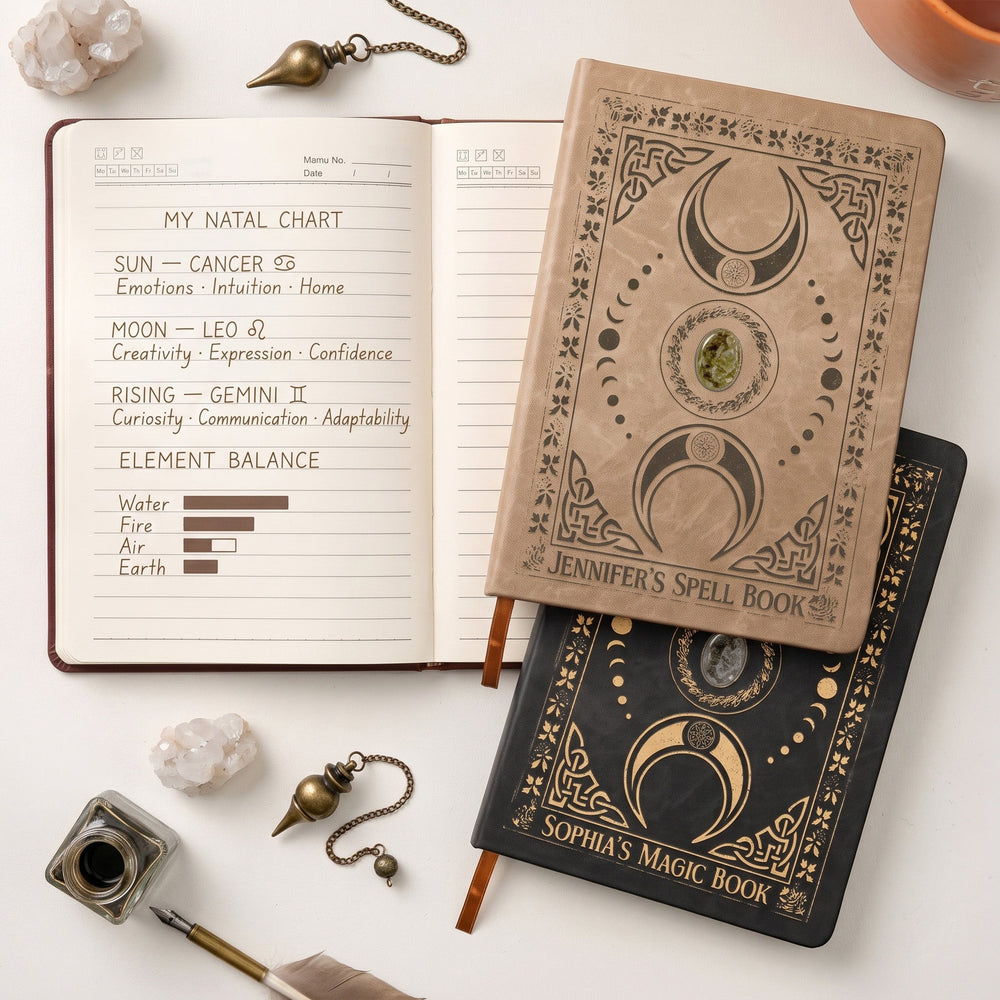 Mamu No.
Date / /
Mo Tu We Th Fr Sa Su
MY NATAL CHART
SUN — CANCER ♋
Emotions · Intuition · Home
MOON — LEO ♌
Creativity · Expression · Confidence
RISING — GEMINI ♊
Curiosity · Communication · Adaptability
ELEMENT BALANCE
Water
Fire
Air
Earth
Mo Tu We Th Fr Sa Su
JENNIFER'S SPELL BOOK
SOPHIA'S MAGIC BOOK